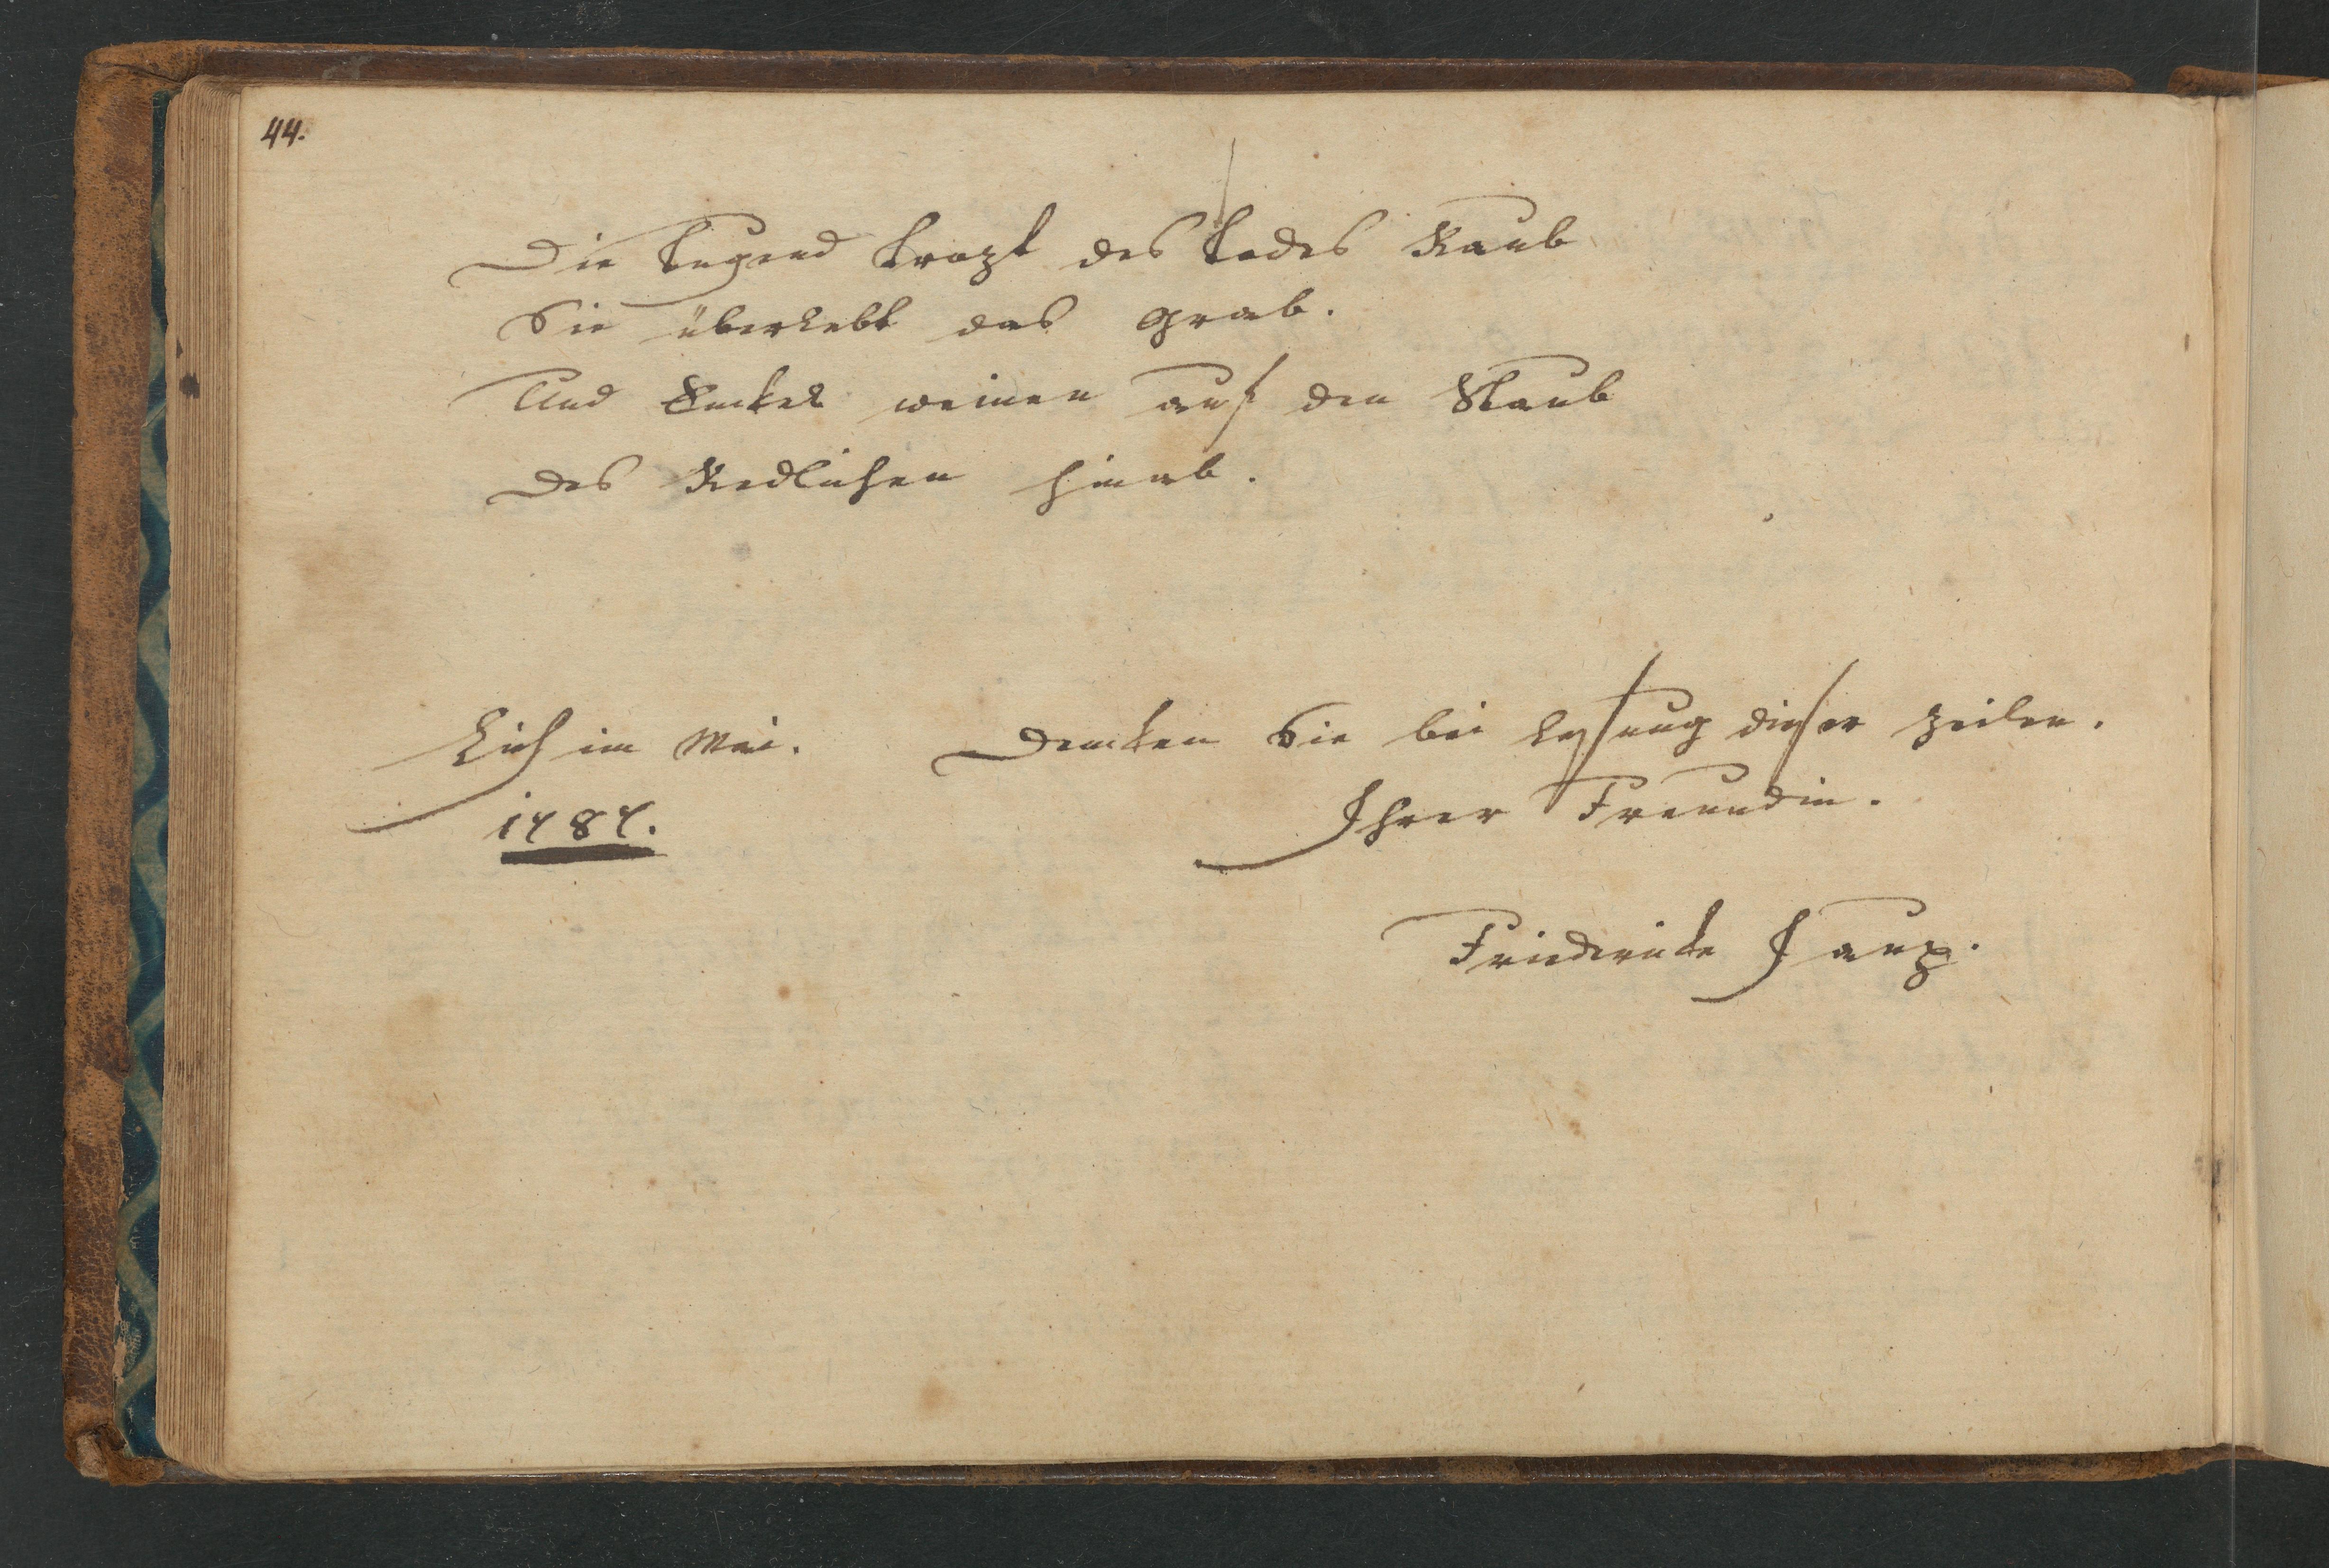 44.
Die Tugend trozt des Todes Raub
Sie überlebt das Grab.
Und Enckel weinen auf den Staub
Des Redlichen hinab.
Lich im Mai. Dencken Sie bei Lesung dieser Zeilen.
1787. Ihrer Freundin.
Friedericke Jaup.